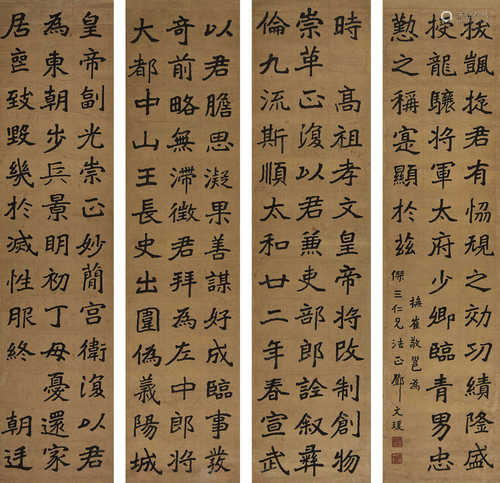 時　高祖孝文皇帝將改制創物
崇革正復以君兼吏部郎詮叙彝
倫九流斯順太和廿二年春宣武
皇帝副光崇正妙簡宮衛復以君
為東朝步兵景明初丁母憂還家
居喪致毀幾於滅性服終　朝廷
以君膽思凝果善謀好成臨事發
奇前略無滯徵君拜為左中郎將
大都中山王長史出圍偽義陽城
拔颽旋君有恊規之効功績隆盛
授龍驤將軍太府少卿臨青男忠
懃之稱蹇顯於茲
橅崔敬邕為
傑三仁兄法正　鄧文瑗